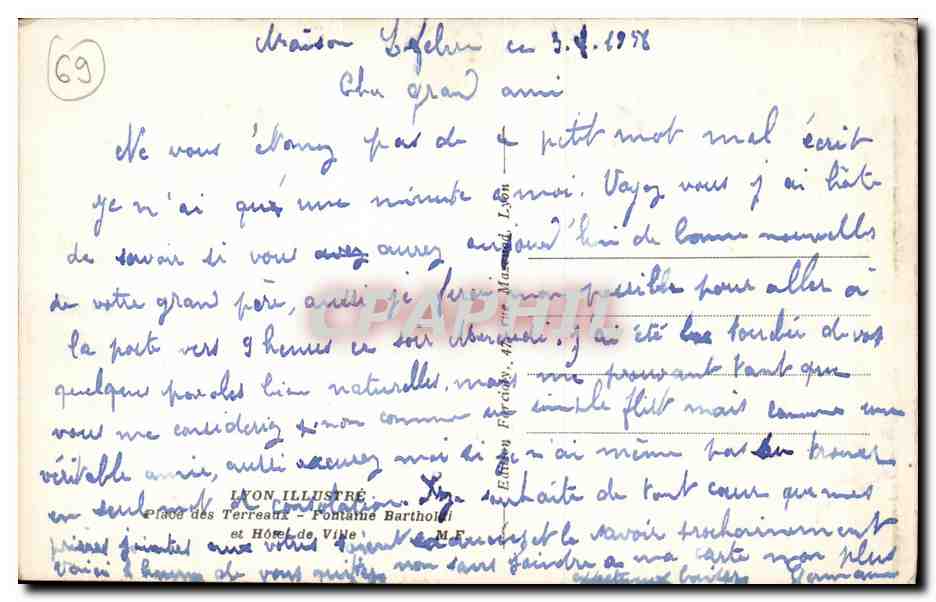 69
Maison Lefebvre ce 3. 1958
Cher grand ami
Ne vous étonnez pas de ce petit mot mal écrit
je n'ai qu'une minute à moi. Voyez vous j'ai hâte
de savoir si vous avez aurez aujourd'hui de bonne nouvelles
de votre grand père, aussi je ferai mon possible pour aller à
la poste vers 9 heures ce soir. j'ai été touchée de vos
quelques paroles bien naturelles, mais me prouvant tant que
vous me considériez non comme un simple flirt mais comme une
véritable amie, aussi excusez moi si je n'ai même pas su trouver
un seul mot de consolation. Je souhaite de tout cœur que mes
prières jointes aux votres soient et le savoir prochainement
de vous quitter non sans joindre à ma carte mon plus
affectueux baiser
LYON ILLUSTRÉ
Place des Terreaux - Fontaine Bartholdi
et Hôtel de Ville M. F.
Edition Lyon
CPAPHIL